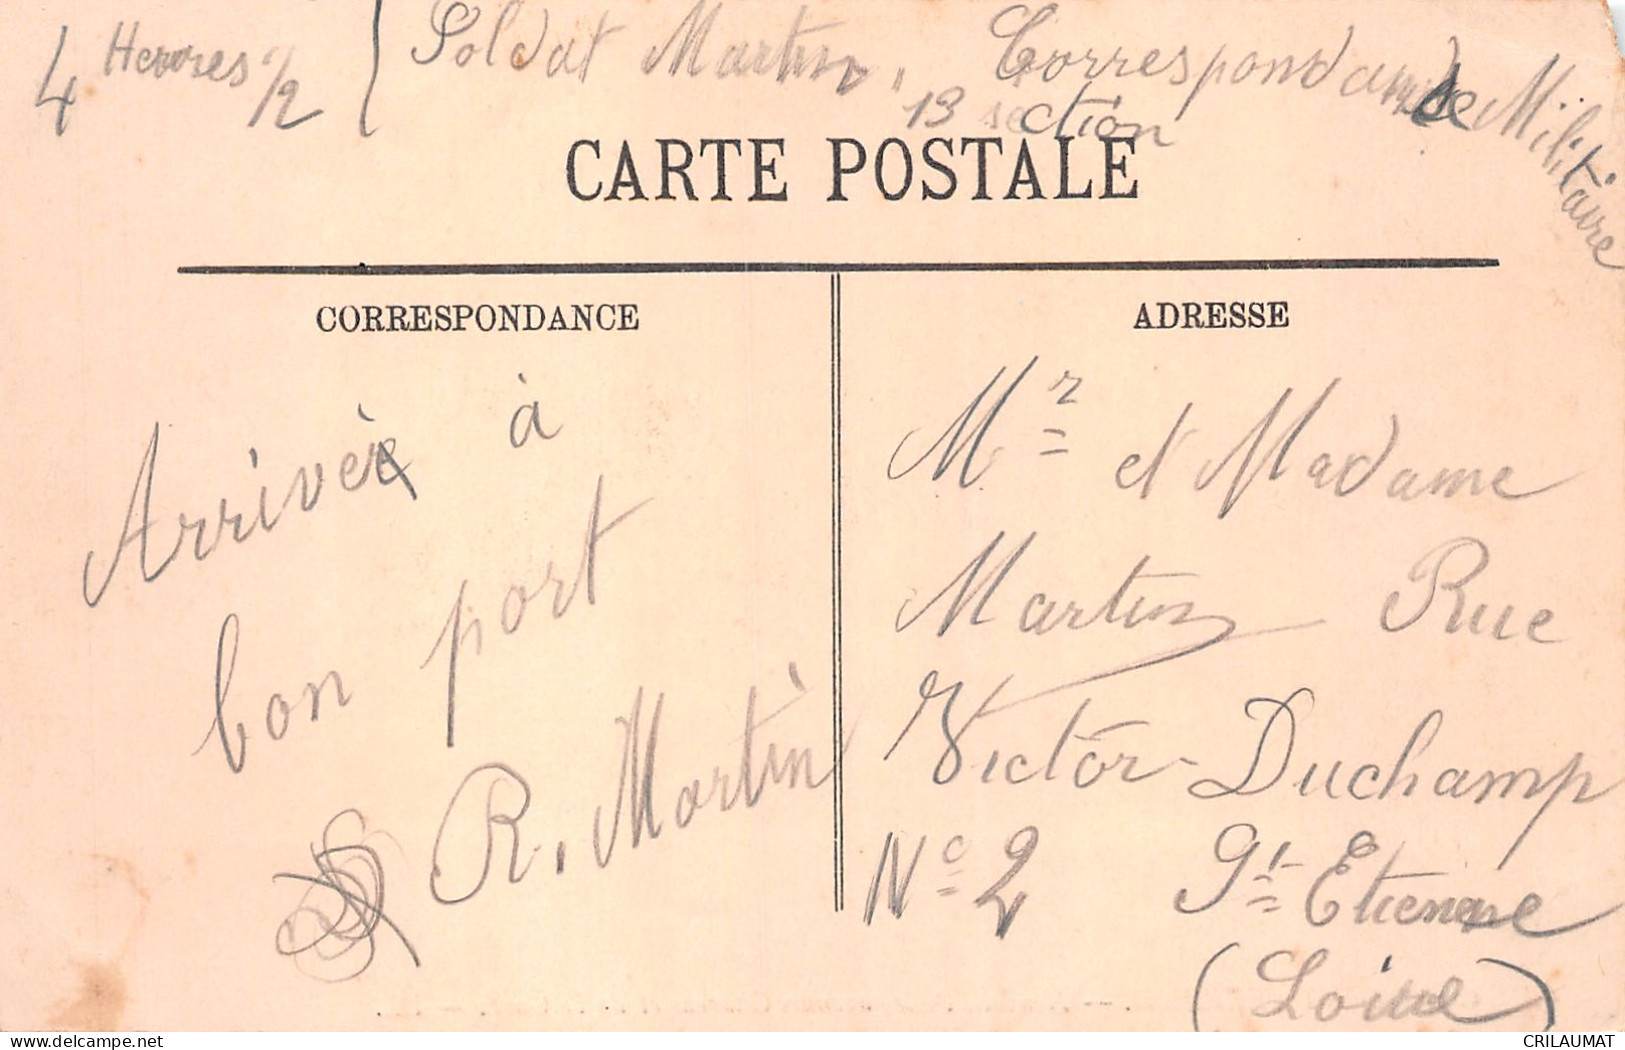 4 Heures 1/2
Soldat Martin. Correspondance Militaire
13 section
CARTE POSTALE
CORRESPONDANCE
Arrivée à
bon port
R. Martin
ADRESSE
Mr et Madame
Martin Rue
Victor-Duchamp
No 2 St Etienne
(Loire)
CRILAUMAT